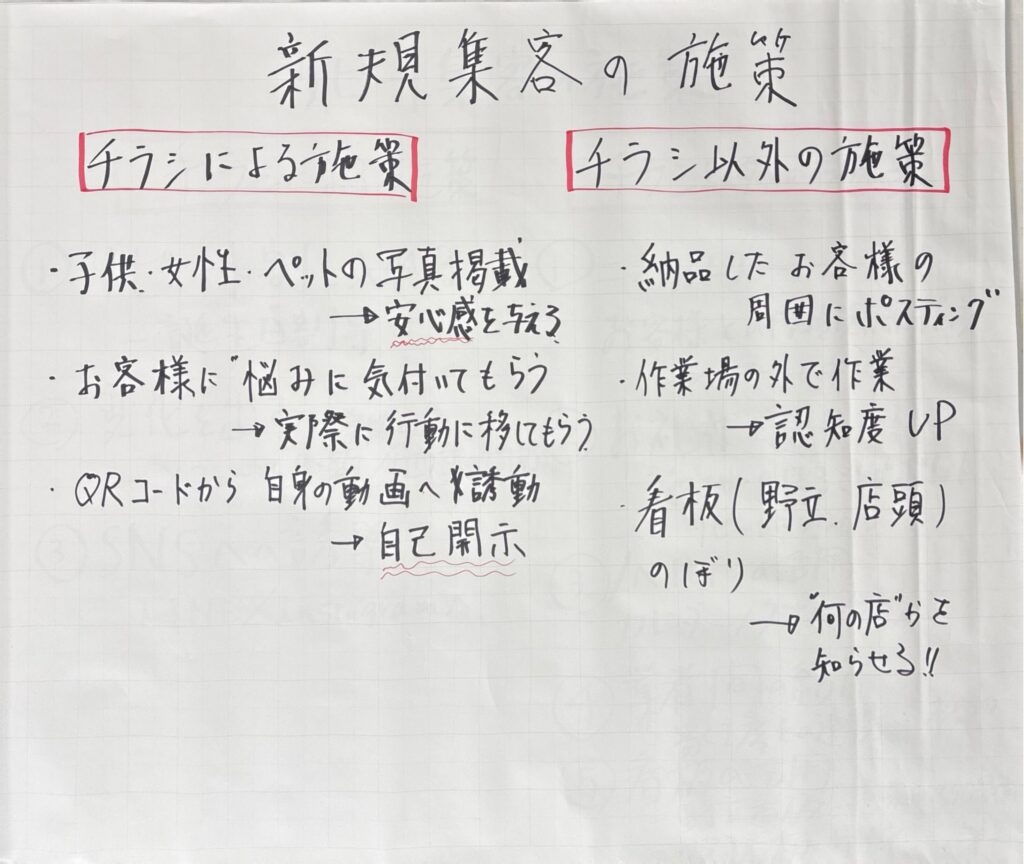 新規集客の施策
チラシによる施策
・子供・女性・ペットの写真掲載
→安心感を与える
・お客様に"悩みに気付いてもらう
→実際に行動に移してもらう
・QRコードから自身の動画へ誘動
→自己開示
チラシ以外の施策
・納品したお客様の
周囲にポスティング
・作業場の外で作業
→認知度UP
・看板(野立、店頭)
のぼり
→"何の店"かを
知らせる!!